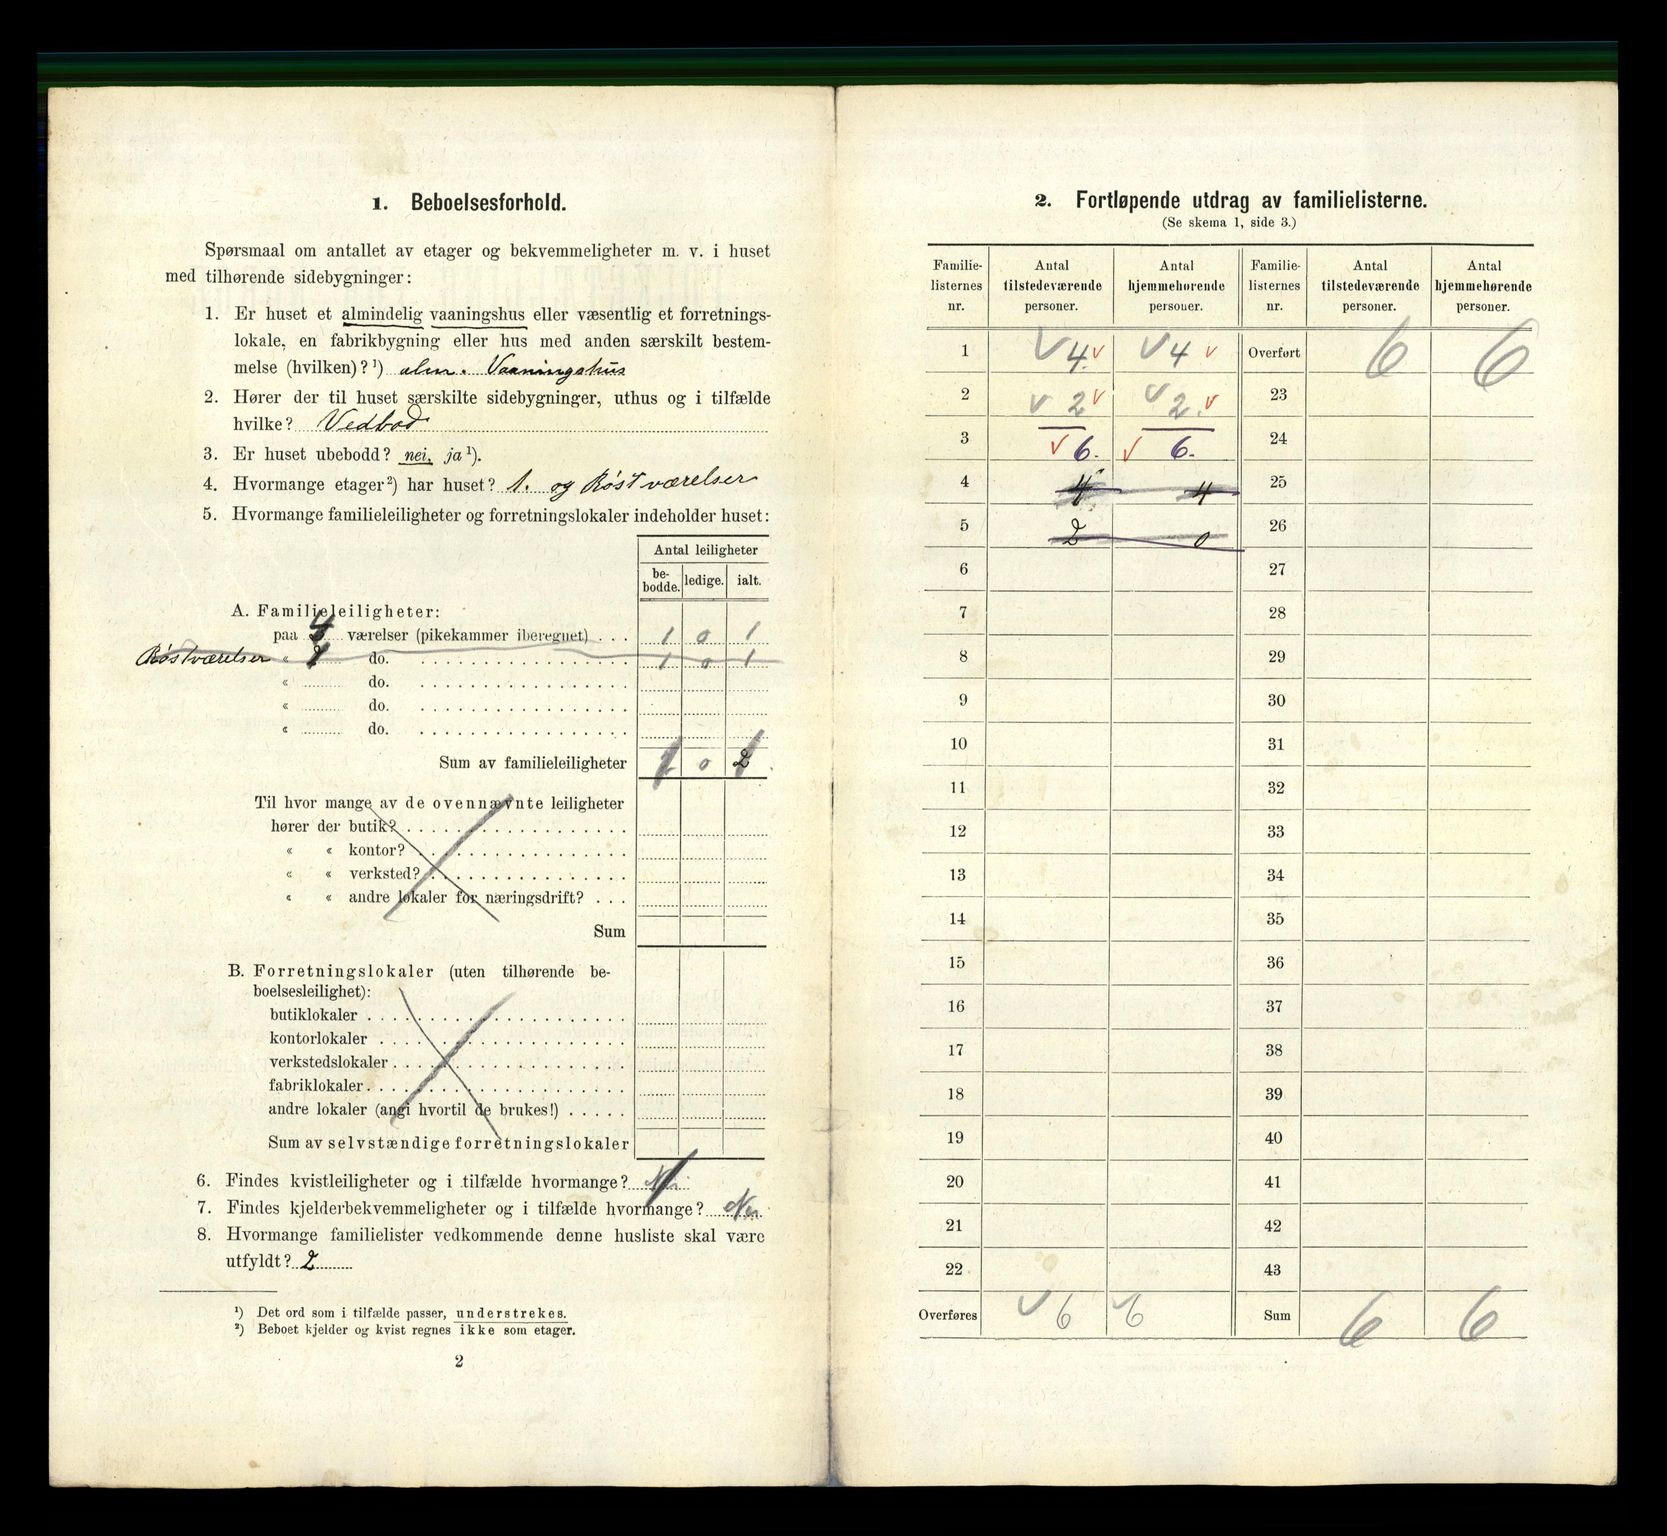 1. Beboelsesforhold.
Spørsmaal om antallet av etager og bekvemmeligheter m. v. i huset
med tilhørende sidebygninger:
1. Er huset et almindelig vaaningshus eller væsentlig et forretnings-
lokale, en fabrikbygning eller hus med anden særskilt bestem-
melse (hvilken)?¹) alm. Vaaningshus
2. Hører der til huset særskilte sidebygninger, uthus og i tilfælde
hvilke? Vedbod
3. Er huset ubebodd? nei, ja¹).
4. Hvormange etager²) har huset? 1. og Røstværelser
5. Hvormange familieleiligheter og forretningslokaler indeholder huset:
Antal leiligheter
be-
bodde. ledige. ialt.
A. Familieleiligheter:
paa 4 værelser (pikekammer iberegnet) . . . 1 0 1
Røstværelser « 2 do. 1 0 1
« do.
« do.
« do.
Sum av familieleiligheter 1 0 2
Til hvor mange av de ovennævnte leiligheter
hører der butik?
« « kontor?
« « verksted?
« « andre lokaler for næringsdrift? . . .
Sum
B. Forretningslokaler (uten tilhørende be-
boelsesleilighet):
butiklokaler
kontorlokaler
verkstedslokaler
fabriklokaler
andre lokaler (angi hvortil de brukes!)
Sum av selvstændige forretningslokaler
6. Findes kvistleiligheter og i tilfælde hvormange? Nei
7. Findes kjelderbekvemmeligheter og i tilfælde hvormange? Nei
8. Hvormange familielister vedkommende denne husliste skal være
utfyldt? 2
¹) Det ord som i tilfælde passer, understrekes.
²) Beboet kjelder og kvist regnes ikke som etager.
2
2. Fortløpende utdrag av familielisterne.
(Se skema 1, side 3.)
Familie- Antal Antal Familie- Antal Antal
listernes tilstedeværende hjemmehørende listernes tilstedeværende hjemmehørende
nr. personer. personer. nr. personer. personer.
1 V 4. v V 4 v Overført 6 6
2 v 2 v v 2. v 23
3 v 6. v 6. 24
4 4 4 25
5 2 0 26
6 27
7 28
8 29
9 30
10 31
11 32
12 33
13 34
14 35
15 36
16 37
17 38
18 39
19 40
20 41
21 42
22 43
Overføres v 6 v 6 Sum 6 6